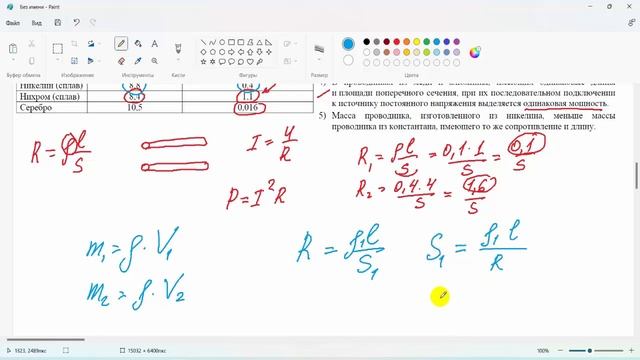 Без имени - Paint
Файл Изменить Посмотреть
Буфер обмена Изображение Инструменты Кисти Фигуры Размер Цвета
Никелин (сплав) 8.8 0.4
Нихром (сплав) 8.4 1.1
Серебро 10.5 0.016
и площади поперечного сечения, при их последовательном подключении
к источнику постоянного напряжения выделяется одинаковая мощность.
5) Масса проводника, изготовленного из никелина, меньше массы
проводника из константана, имеющего то же сопротивление и длину.
R = ρl/S
I = U/R
P = I²R
R₁ = ρl/S = 0,1·1/S = 0,1/S
R₂ = 0,4·4/S = 1,6/S
m₁ = ρ·V₁
m₂ = ρ·V₂
R = ρ₁l/S₁
S₁ = ρ₁l/R
1623, 2489пкс 15032 × 6400пкс 100%